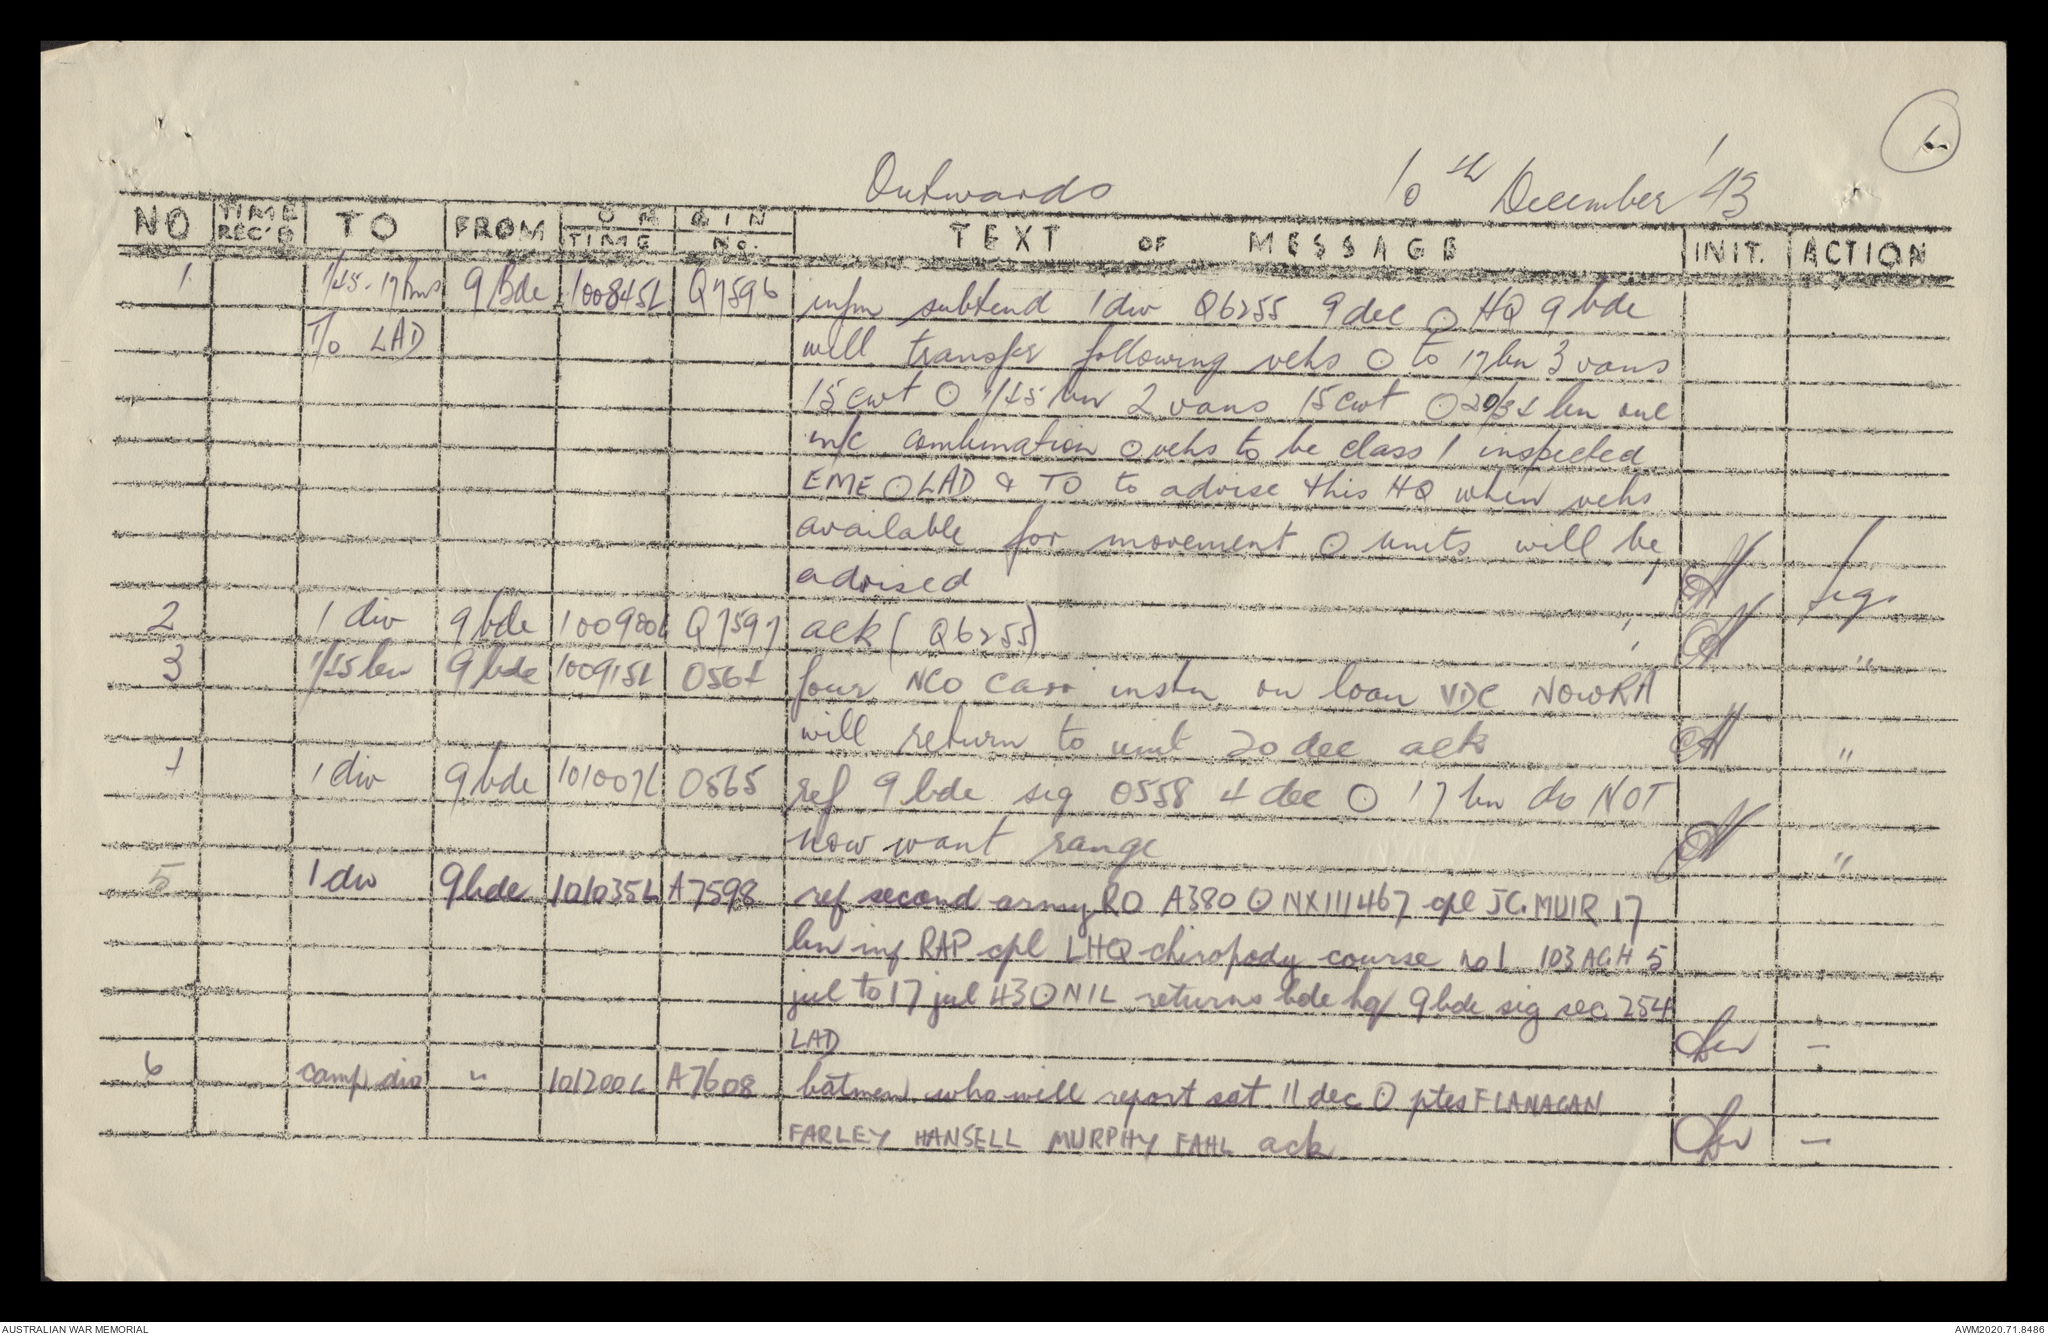 6
Outwards 10th December '43
NO TIME REC'D TO FROM ORIGIN TIME NO. TEXT OF MESSAGE INIT. ACTION
1 1/45-17 bns 9 Bde 100845L Q7596 infm subtend 1 div Q6255 9 dec O HQ 9 bde
T/O LAD will transfer following vehs O to 17 bn 3 vans
15 cwt O 1/45 bn 2 vans 15 cwt O 20/34 bn one
m/c combination O vehs to be class 1 inspected
EME O LAD & TO to advise this HQ when vehs
available for movement O units will be
advised sigs
2 1 div 9 bde 100900L Q7597 ack (Q6255) "
3 1/45 bn 9 bde 100915L O564 four NCO carr instn on loan VDC NOWRA
will return to unit 20 dec ack "
4 1 div 9 bde 101007L O565 ref 9 bde sig O558 4 dec O 17 bn do NOT
now want range "
5 1 div 9 bde 101035L A7598 ref second army RO A380 O NX111467 cpl J.C. MUIR 17
bn inf RAP cpl LHQ chiropody course no 1 103 AGH 5
jul to 17 jul 43 O NIL returns bde hq 9 bde sig sec 254
LAD -
6 camp div " 101200L A7608 batmen who will report sat 11 dec O ptes FLANAGAN
FARLEY HANSELL MURPHY FAHL ack -
AUSTRALIAN WAR MEMORIAL AWM2020.71.8486